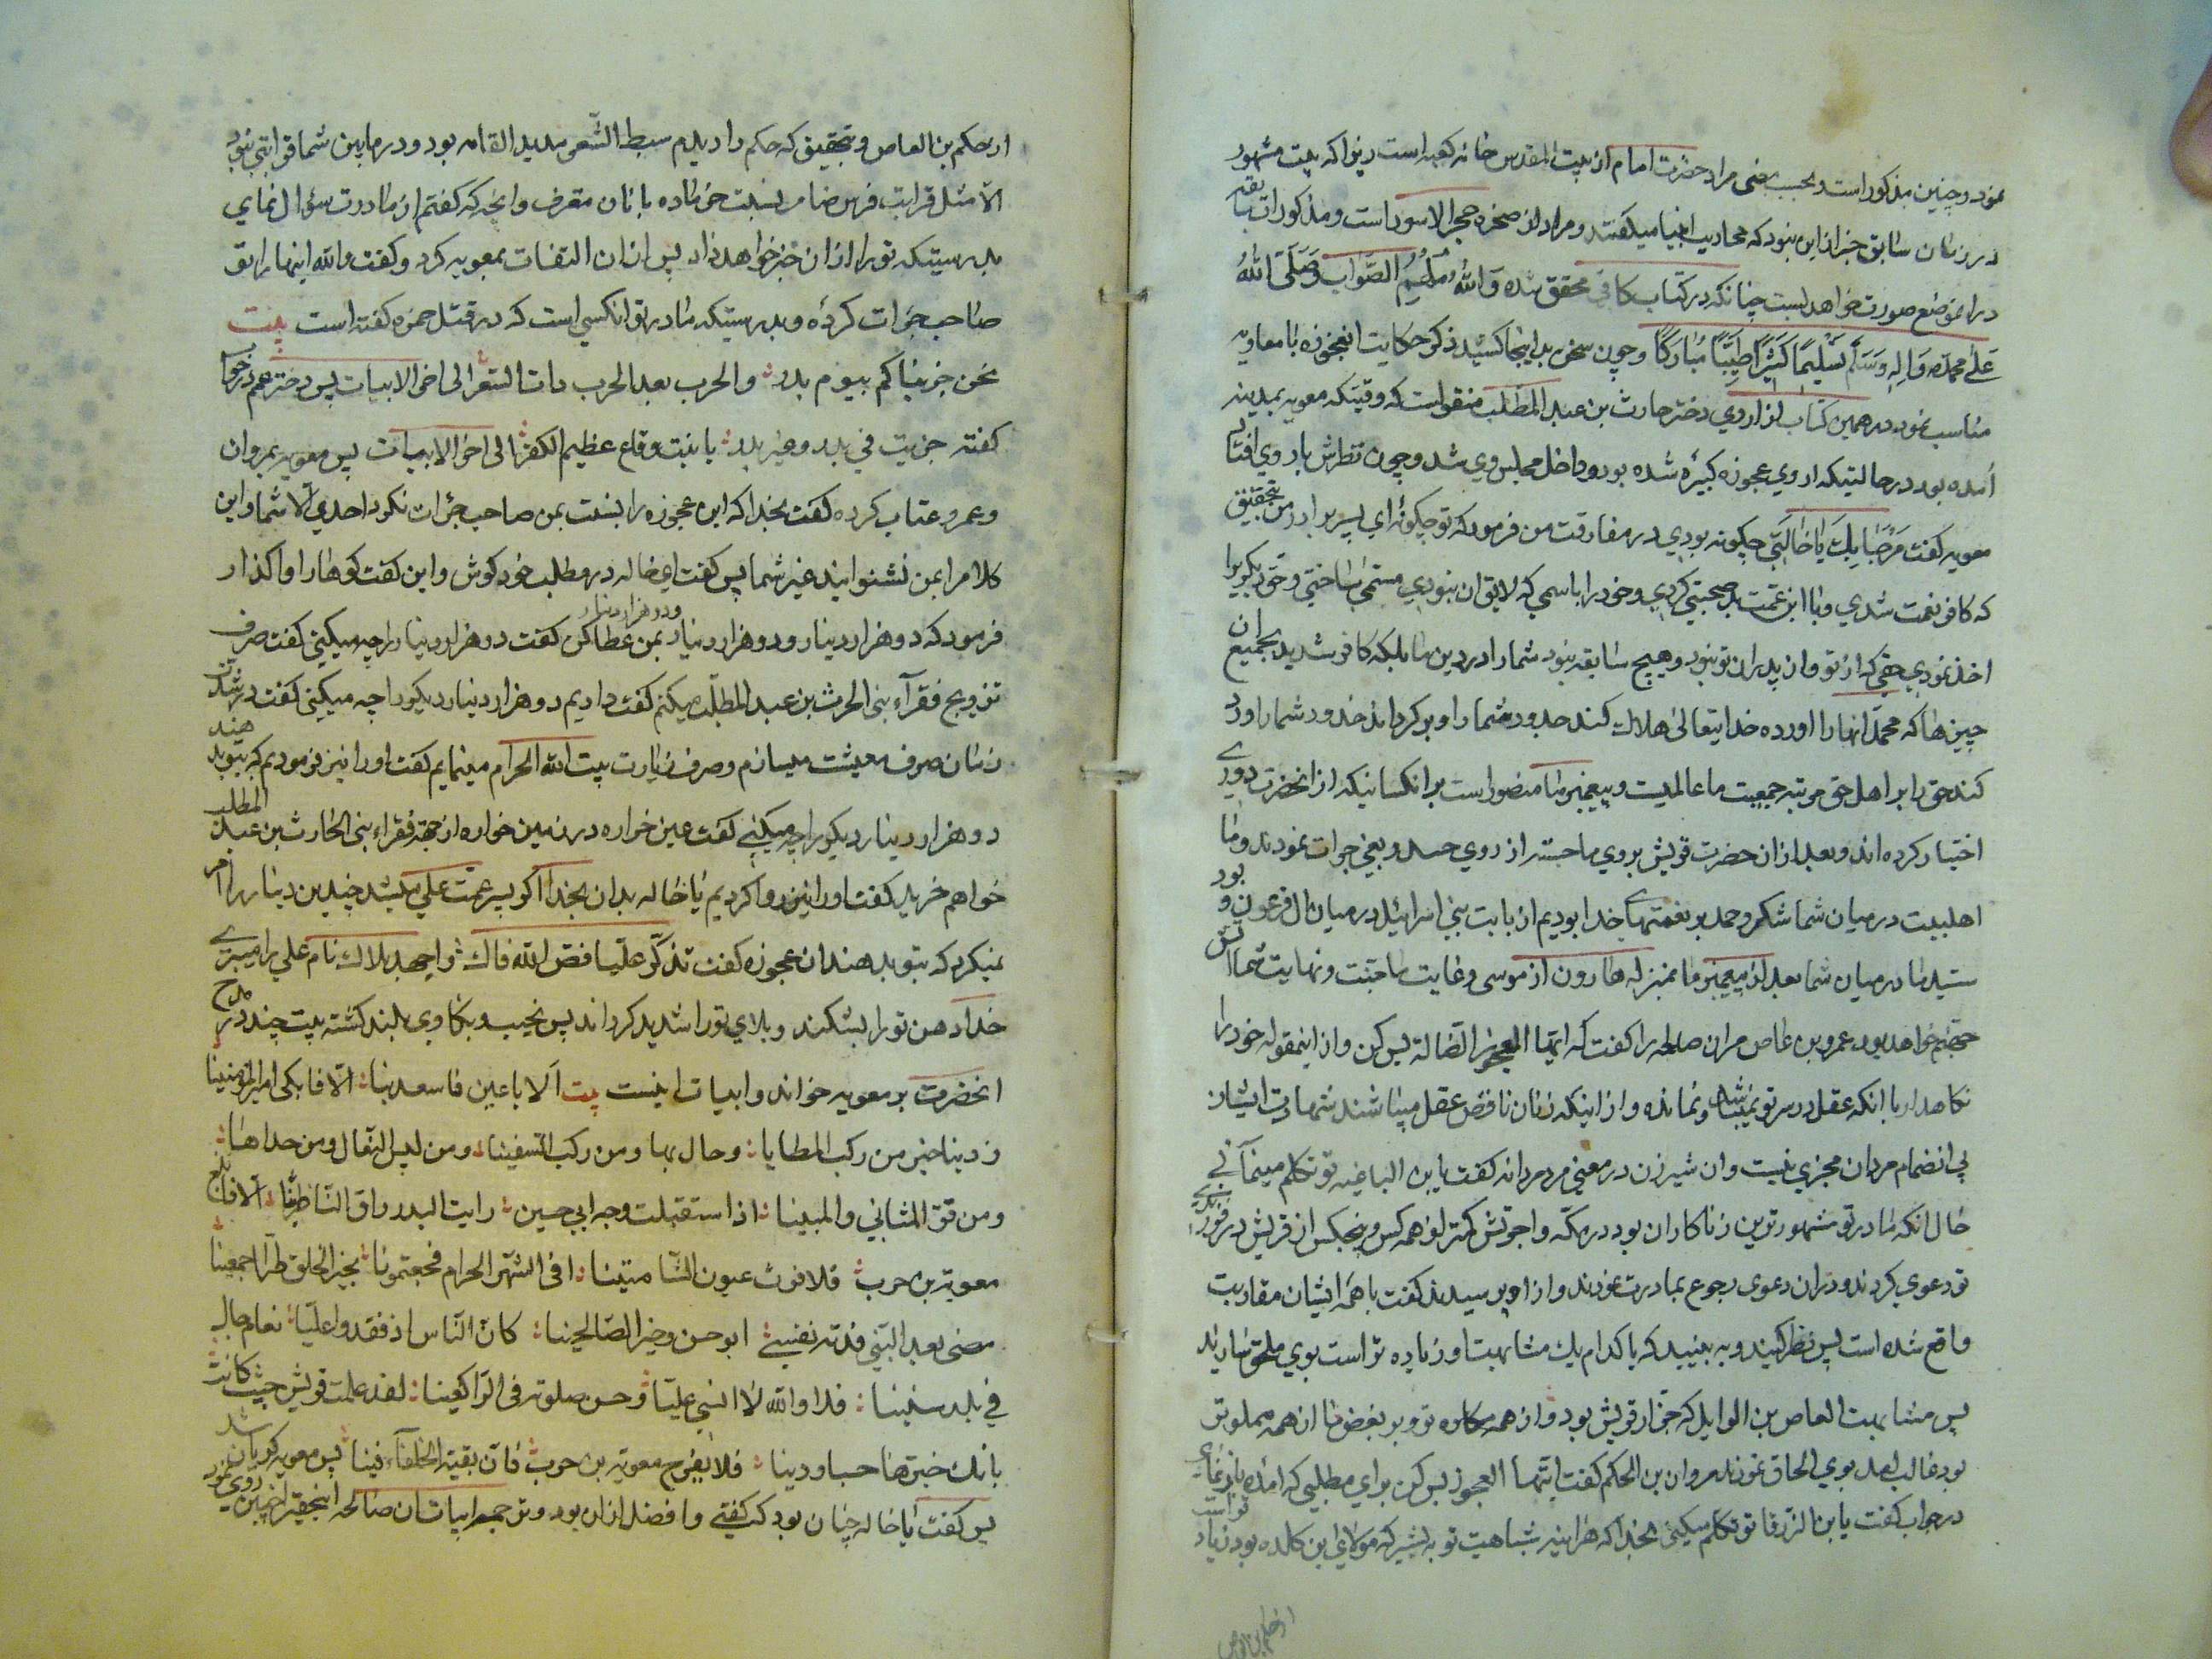 نمود و چنین مذکور است و بحسب معنی مراد حضرت امام از بیت المقدس خانه کعبه است زیرا که بیت مشهور
در زمان سابق جز از این نبود که محاریب انبیا میکفتند و مراد از صخره حجر الاسود است و مذکورات بقیه
در انموضع صورت خواهد بست چنانکه در کتاب کافی محقق شده وَاللّٰهُ مُلْهِمُ الصَّوابِ وَصَلَّی اللّٰهُ
عَلٰی مُحَمَّدٍ وَالِهِ وَسَلَّمَ تَسْلیمًا کَثیرًا طَیِّبًا مُبارَکًا و چون سخن بد اینجا کشید ذکر حکایت انعجوزه با معاویه
مناسب نمود در همین کتاب از اروی دختر حارث بن عبد المطلب منقولست که وقتیکه معویه بمدینه
آمده بود در حالتیکه اروی عجوزه کبیره شده بود و داخل مجلس وی شد و چون نظرش بار وی افتاد
معویه کفت مَرْحَبًا بِكِ یٰا خٰالَتی چکونه بودی در مفارقت من فرمود که تو چکونهٔ ای پسر برادر من بتحقیق
که کافر نعمت شدی و با ابن عمت بد صحبتی کردی و خود را باسمی که لایق ان نبودی مسمی ساختی و حق دیکریرا
اخذ نمودی حقی که از تو و از پدران تو نبود و هیچ سابقه نبود شما را در دین ما بلکه کافر شدید بجمیع ان
چیزها که محمد انها را اورده خدایتعالی هلاك کند جدود شما را و بر کرداند خدود شما را و رد
کند حق را بر اهل حق مرتبه جمعیت ما عالمیت و پیغمبر ما منصور است بر انکسانیکه از انحضرت دوری
اختیار کرده اند و بعد از ان حضرت قریش بروی ما جسته از روی حسد و بغی جرات نمودند و ما
اهلبیت در میان شما شکر و حمد بر نعمتهای خدا بودیم از بابت بنی اسرائیل در میان ال فرعون و بود
سید ما در میان شما بعد از پیغمبر ما بمنزله هارون از موسی و غایت ما جنت و نهایت شما اتش
جهنم خواهد بود عمرو بن عاص مر ان صالحه را کفت که ایتها العجوز الضالة بس کن و از اینمقوله خود را
نکاهدار با انکه عقل در سر تو نمیباشد و نمانده و از اینکه زنان ناقص عقل میباشند شهادت ایشان
بی انضمام مردان مجزی نیست و ان شیر زن در معنی مردمردانه کفت یابن الباغیه تو تکلم مینمائی
حال انکه مادر تو مشهورترین زناکاران بود در مکه و اجرتش کمتر از همه کس و پنجکس از قریش در فرزندی
تو دعوی کردند و در ان دعوی رجوع بمادرت نمودند و از او پرسیدند کفت با همه ایشان مقاربت
واقع شده است پس نظر کنید و به بینید که با کدام یك مشابهت او زیاده تر است بوی ملحق سازید
پس مشابهت العاص بن الوایل که جزار قریش بود و از همه مکاره تر و بر بغض ما از همه مملوتر
بود غالب امد بوی الحاق نمودند مروان بن الحکم کفت ایتها العجوز بس کن برای مطلبی که امده باز نمای
در جواب کفت یابن الزرقا تو تکلم میکنی بخدا که هراینه شباهت تو به بشیر که مولای ابن کلده بود زیاد تر است
از حکم بن العاص
از حکم بن العاص و بتحقیق که حکم را دیدم سبط الشعر مدید القامه بود و در مابین شما قرابتی نبود
الا مثل قرابت فرس ضامر بنسبت خر ماده با اتان مقرف و انچه که کفتم از مادرت سؤال نمای
بدرستیکه تو را از ان خبر خواهد داد پس از ان التفات بمعویه کرد و کفت والله اینها را تو
صاحب جرات کردهٔ و بدرستیکه مادر تو انکسی است که در قتل حمزه کفته است بیت
نحن جزیناکم بیوم بدر والحرب بعد الحرب ذات السعر الی اخر الابیات پس دختر عم در جواب
کفته خزیت فی بدر و غیر بدر یا بنت وقاع عظیم الکفر الی اخر الابیات پس معویه بمروان
و عمرو عتاب کرده کفت بخدا که این عجوزه را بنسبت بمن صاحب جرئت نکرد احدی الا شما و این
کلام را بمن نشنوانید غیر شما پس کفت ای خاله در مطلب خود کوش و این کفت کوها را واکذار
فرمود که دو هزار دینار و دو هزار دینار و دو هزار دینار بمن عطا کن کفت دو هزار دینار را چه میکنی کفت صرف
تزویج فقرآء بنی الحرث بن عبد المطلب میکنم کفت دادیم دو هزار دینار دیکر را چه میکنی کفت در شدت
زمان صرف معیشت میسازم و صرف زیارت بیت الله الحرام مینمایم کفت اورا نیز فرمودیم که بتو بدهند
دو هزار دینار دیکر را چه میکنی کفت عین خراره در زمین خواره از جهة فقراء بنی الحارث بن عبد المطلب
خواهم خرید کفت اورا نیز روا کردیم یا خاله بدان بخدا اکر پسر عمت علی میشد چندین دینار را امر
نمیکرد که بتو بدهند ان عجوزه کفت تذکر علیا فض الله فاك و اجهد بلاك نام علی را میبری
خدا دهن تو را بشکند و بلای تورا شدید کرداند پس نحیب و بکا وی بلند کشته بیت چند در مدح
انحضرت بر معویه خواند و ابیات اینست بیت الا یا عین فاسعدینا الا فابکی امیر المؤمنینا
رزینا خیر من رکب المطایا و حال بها و من رکب السفینا و من لبس النعال و من حذاها
و من قرء المثانی والمبینا اذا استقبلت وجه ابی حسین رایت البدر راق الناظرینا الا فابلغ
معویة بن حرب فلا قرت عیون الشامتینا افی الشهر الحرام فجعتمونا بخیر الخلق طرا اجمعینا
مضی بعد النبی فدته نفسی ابو حسن و خیر الصالحینا کان الناس اذ فقدوا علیا نعام جال
فی بلد سنینا فلا والله لا انسی علیا و حسن صلوته فی الراکعینا لقد علمت قریش حیث کانت
بانك خیرها حسبا و دینا فلا یفرح معویة بن حرب فان بقیة الخلفآء فینا پس معویه کریان شد
پس کفت یا خاله چنان بود که کفتی و افضل از ان بود و ترجمه ابیات ان صالحه اینحقیر را چنین روی نمود